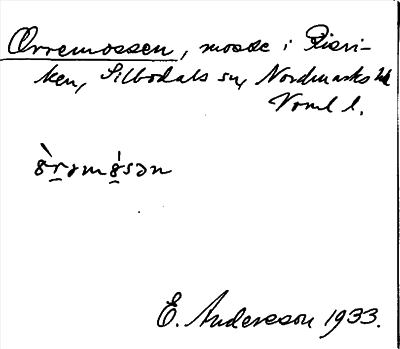 Orremossen, mosse i Risvi-
ken, Silbodals sn, Nordmarks hd
Verml l.
E. Andersson 1933.